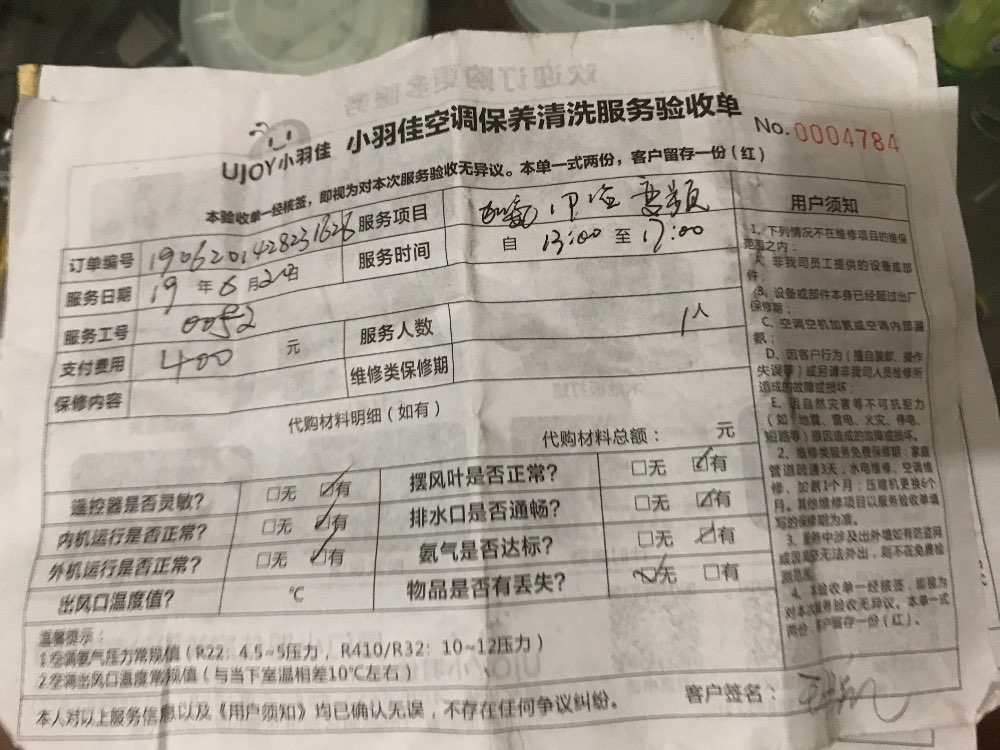 欢迎订购更多服务
UJOY小羽佳 小羽佳空调保养清洗服务验收单 No.0004784
本验收单一经核签，即视为对本次服务验收无异议。本单一式两份，客户留存一份(红)
订单编号 190620142823 服务项目 加氨 变频
服务日期 19 年 6 月 服务时间 自 13:00 至 17:00
服务工号 0052 服务人数 1人
支付费用 400 元 维修类保修期
保修内容
代购材料明细（如有）
代购材料总额： 元
遥控器是否灵敏？ □无 ☑有 摆风叶是否正常？ □无 ☑有
内机运行是否正常？ □无 ☑有 排水口是否通畅？ □无 ☑有
外机运行是否正常？ □无 ☑有 氨气是否达标？ □无 ☑有
出风口温度值？ ℃ 物品是否有丢失？ ☑无 □有
温馨提示：
1.空调氨气压力常规值（R22：4.5~5压力，R410/R32：10~12压力）
2.空调出风口温度常规值（与当下室温相差10℃左右）
本人对以上服务信息以及《用户须知》均已确认无误，不存在任何争议纠纷。 客户签名：
用户须知
1、下列情况不在维修项目的维保
范围之内：
A、非我司员工提供的设备或部
件；
B、设备或部件本身已经超过出厂
保修期；
C、空调空机加氨或空调内部漏
氨；
D、因客户行为（擅自装卸、操作
失误等）或另请非我司人员检修所
造成的故障或损坏；
E、因自然灾害等不可抗拒力
（如 地震、雷电、火灾、停电、
短路等）原因造成的故障或损坏。
2、维修类服务免费保修期：家庭
管道疏通3天；水电维修、空调维
修、加氨1个月；压缩机更换6个
月。其他维修项目以服务验收单填
写的保修期为准。
3、服务中涉及出外墙如有防盗网
或因 无法外出，则不在免费检
测范围。
4、本验收单一经核签，即视为
对本次服务验收无异议。本单一式
两份，客户留存一份（红）。